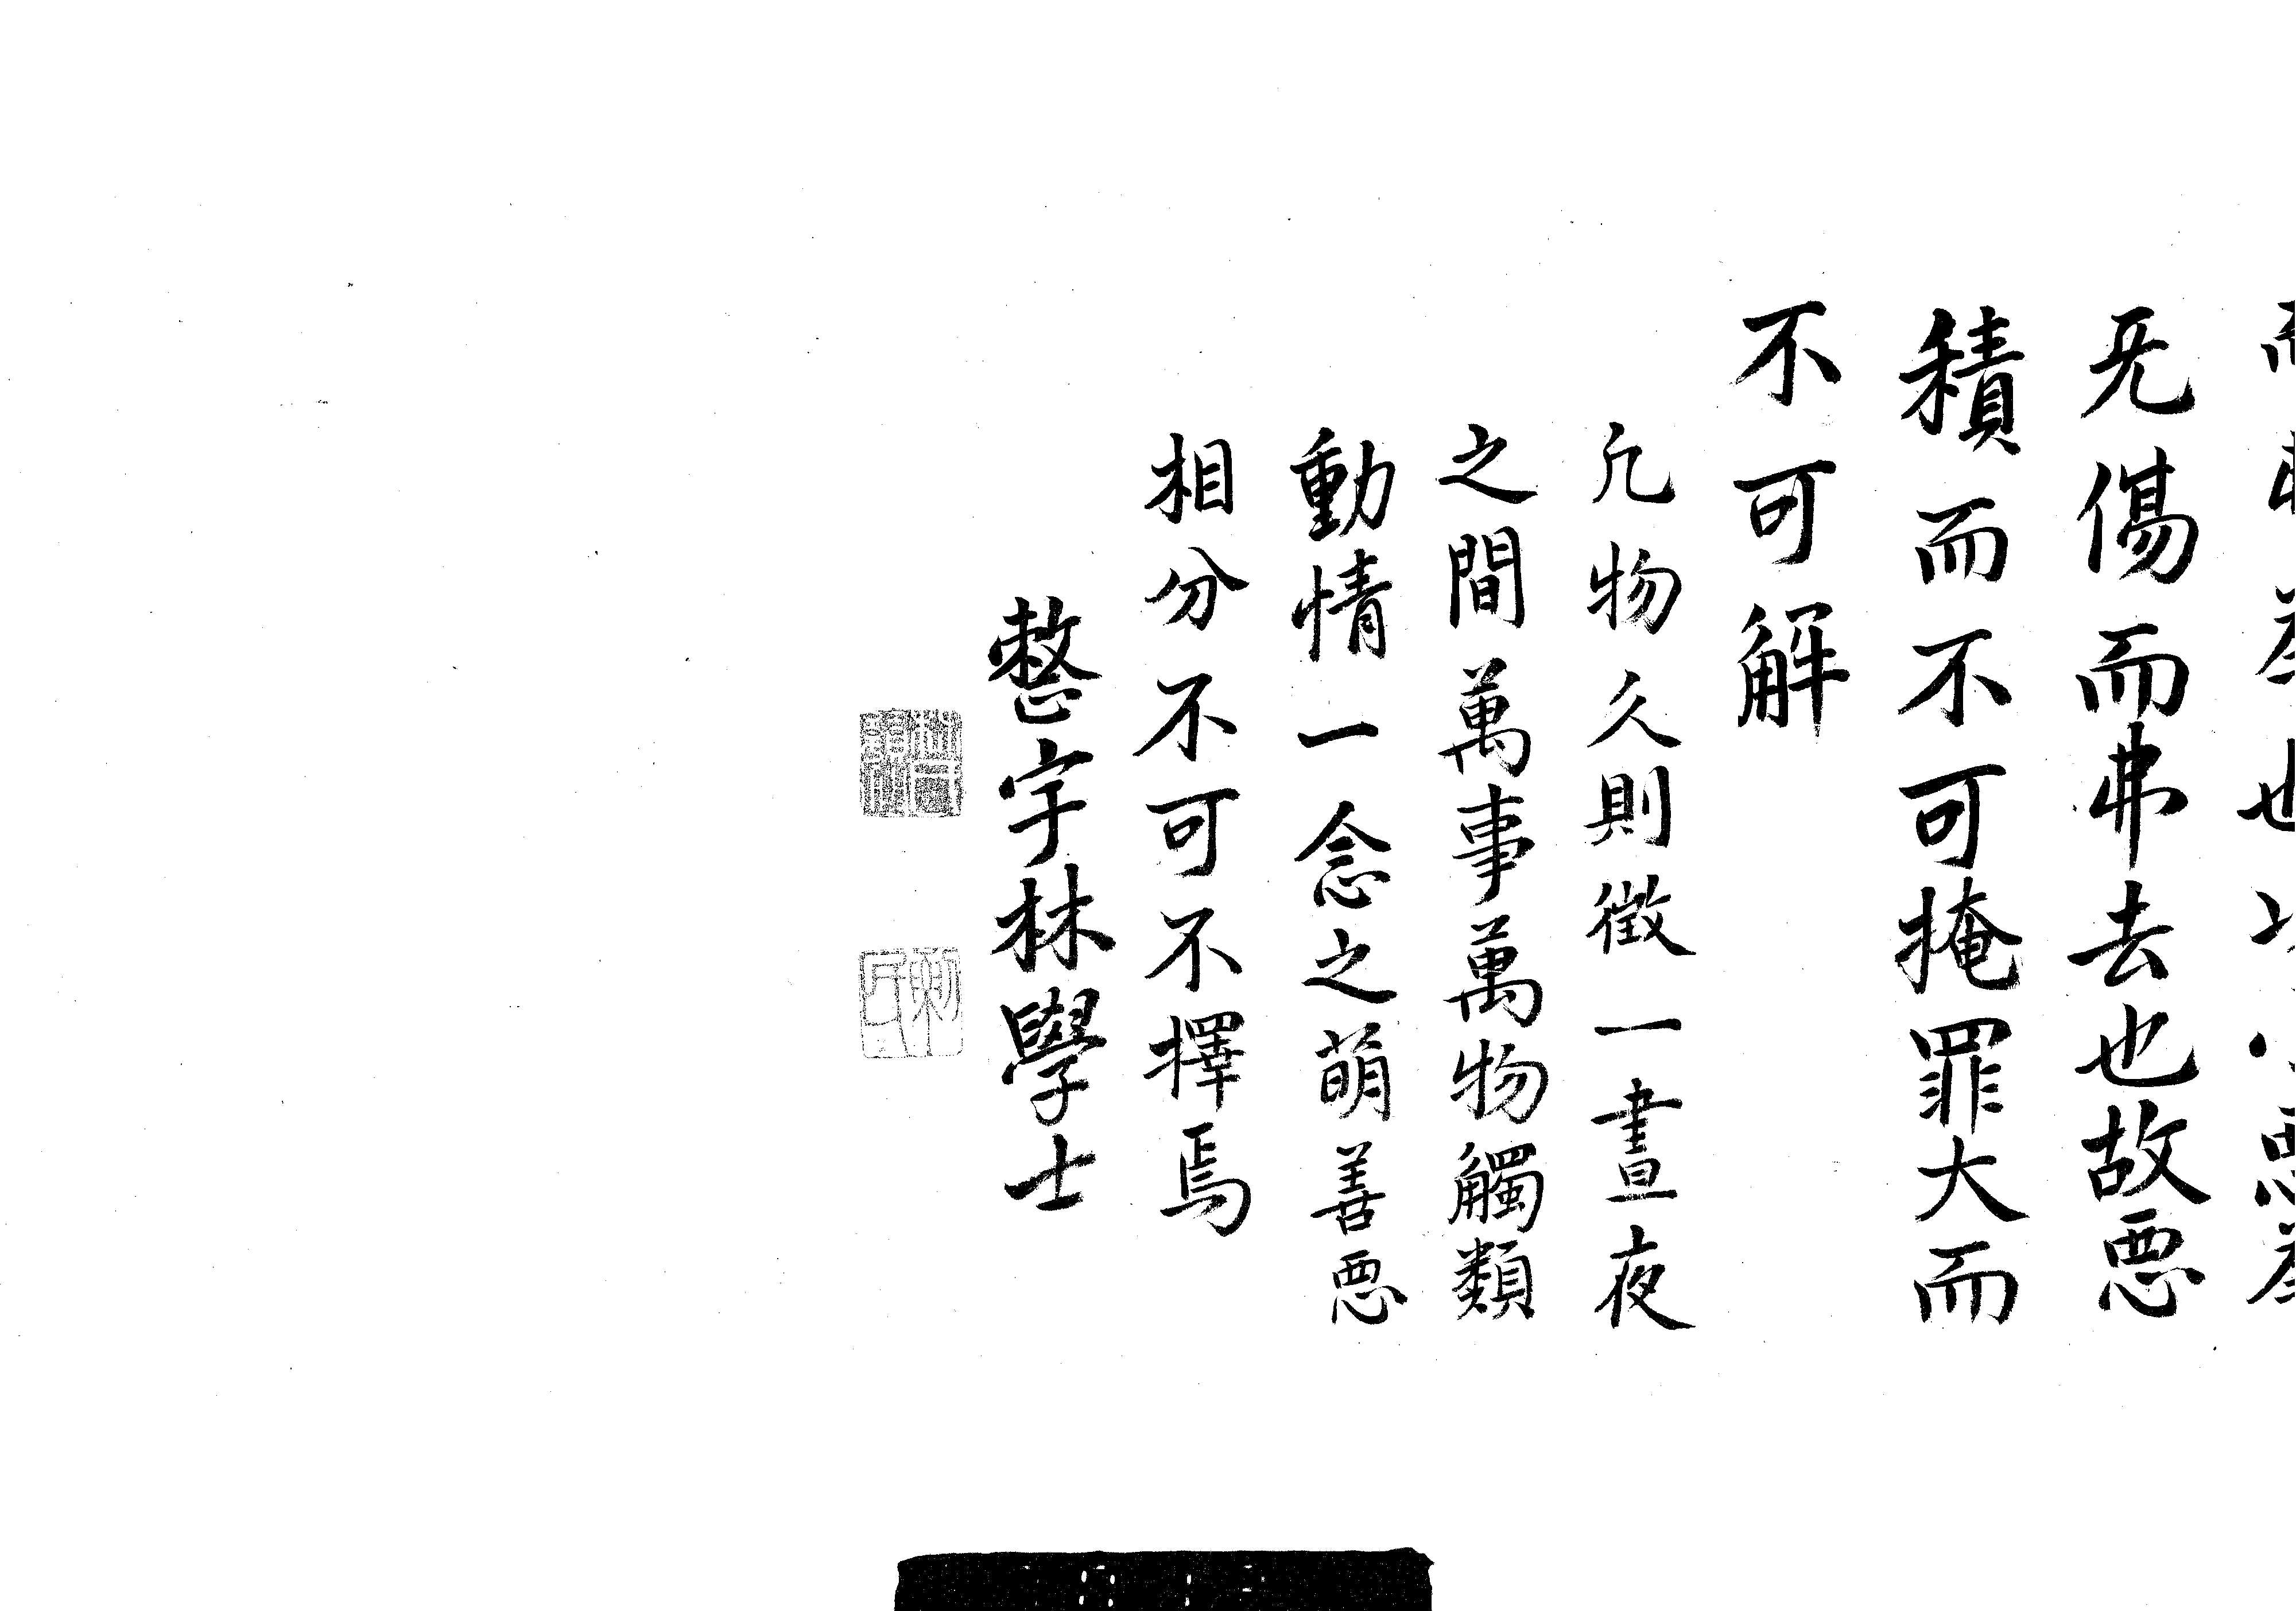 无傷而弗去也故悪
積而不可掩罪大而
不可解
凢物久則徴一晝夜
之間萬事萬物觸類
動情一念之萌善悪
相分不可不擇焉
整宇林學士